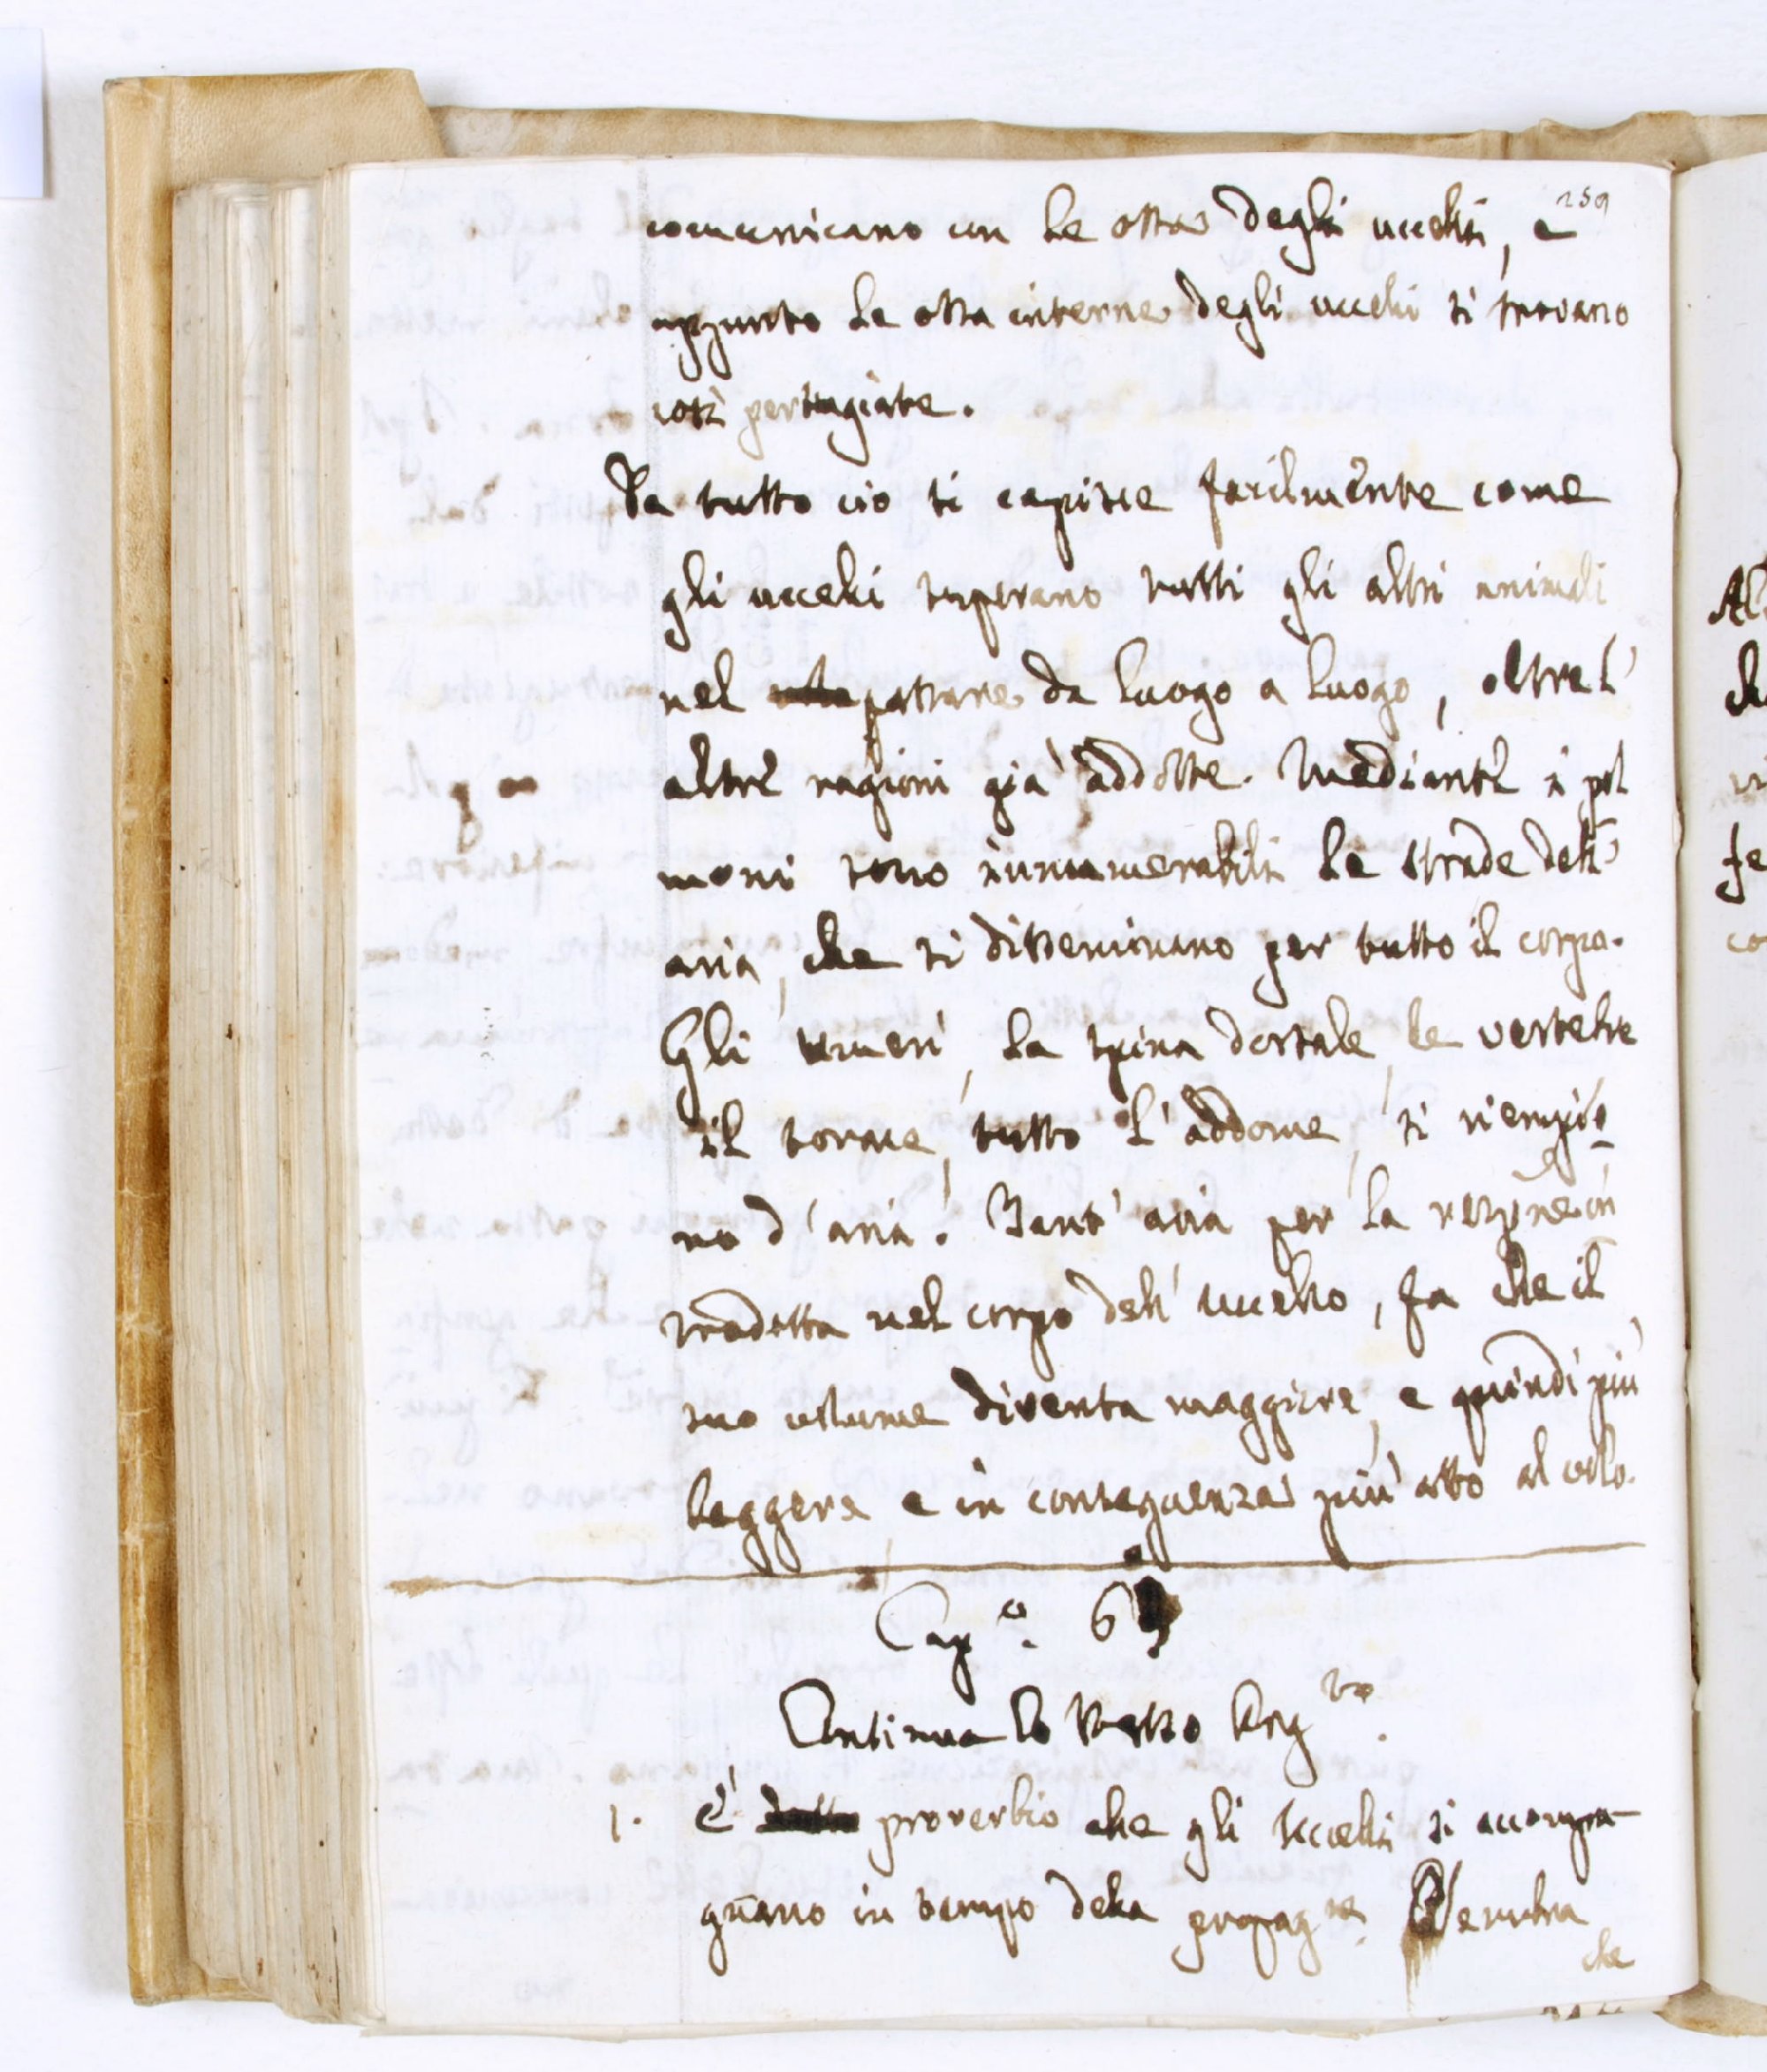 259
comunicano con le ossa degli uccelli, e
appunto le ossa interne degli uccelli si trovano
così pertugiate.
Da tutto ciò si capisce facilmente come
gli uccelli superano tutti gli altri animali
nel passare da luogo a luogo, oltre l'
altre ragioni già addotte. Mediante i pol
moni sono innumerabili le strade dell'
aria, che si disseminano per tutto il corpo.
Gli umeri, la spina dorsale, le vertebre
il torace, tutto l'addome, si riempio
no d'aria. Tant'aria per la respne in
trodotta nel corpo dell'uccello, fa che il
suo volume diventa maggiore, e quindi più
leggere e in conseguenza più atto al volo.
Capo. 6
Continua lo stesso Argto.
1. È proverbio che gli Uccelli si accompa
gnano in tempo della propagne. Sembra
che